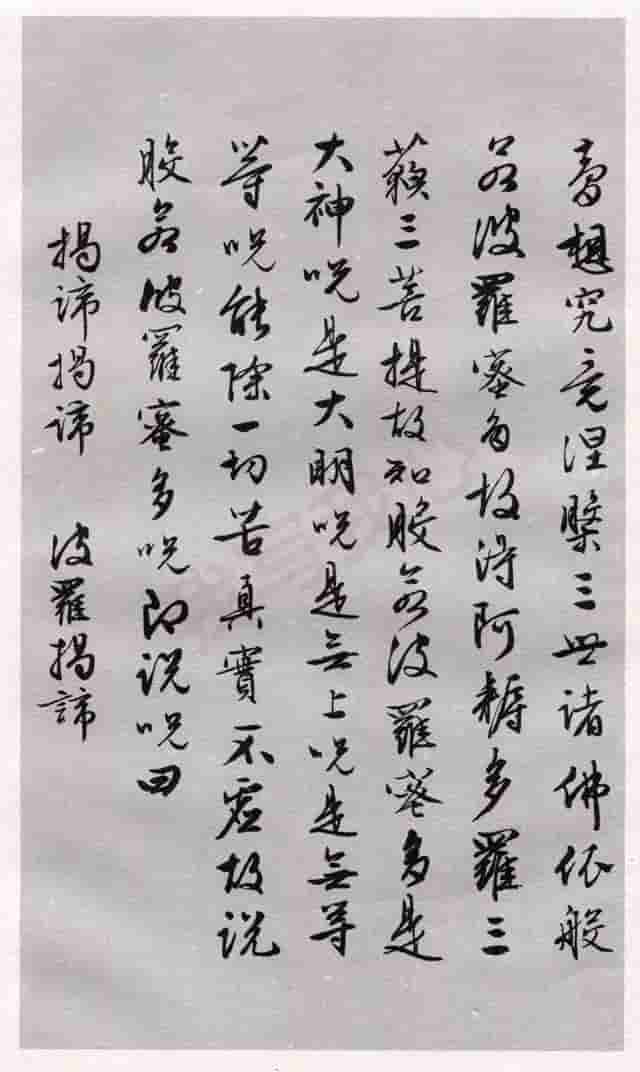 夢想究竟涅槃三世諸佛依般
若波羅蜜多故得阿耨多羅三
藐三菩提故知般若波羅蜜多是
大神咒是大明咒是無上咒是無等
等咒能除一切苦真實不虛故說
般若波羅蜜多咒即說咒曰
揭諦揭諦 波羅揭諦